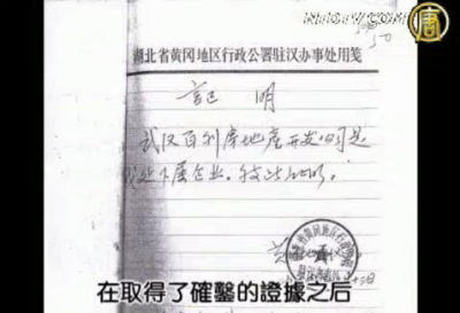 唐
湖北省黄冈地区行政公署驻汉办事处用笺
证明
武汉百利房地产开发公司是
我处下属企业。特此证明。
在取得了確鑿的證據之后